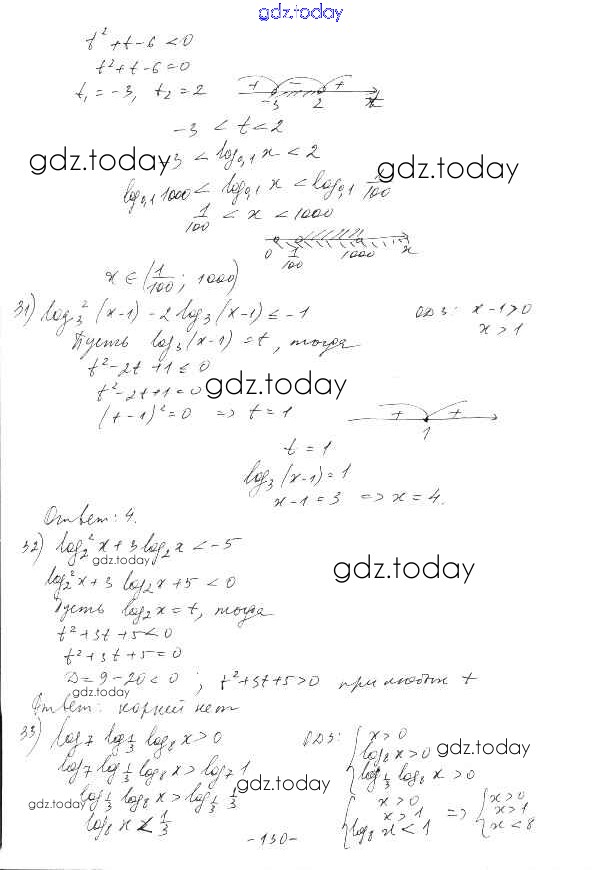 gdz.today
t² + t - 6 < 0
t² + t - 6 = 0
t₁ = -3, t₂ = 2
+ - +
-3 2 t
-3 < t < 2
gdz.today
-3 < log₀,₁ x < 2
gdz.today
log₀,₁ 1000 < log₀,₁ x < log₀,₁ 1/100
1/100 < x < 1000
0 1/100 1000 x
x ∈ (1/100; 1000)
31) log₃² (x-1) - 2 log₃ (x-1) ≤ -1
ОДЗ: x-1>0
x > 1
Пусть log₃ (x-1) = t, тогда
t² - 2t + 1 ≤ 0
t² - 2t + 1 = 0
gdz.today
(t-1)² = 0 => t = 1
+ +
1
t = 1
log₃ (x-1) = 1
x-1 = 3 => x = 4.
Ответ: 4.
32) log₂² x + 3 log₂ x < -5
gdz.today
gdz.today
log₂² x + 3 log₂ x + 5 < 0
Пусть log₂ x = t, тогда
t² + 3t + 5 < 0
t² + 3t + 5 = 0
D = 9 - 20 < 0 ; t² + 3t + 5 > 0 при любых t
gdz.today
Ответ: корней нет
33) log₇ log⅓ log₈ x > 0
ОДЗ: { x > 0
log₈ x > 0
gdz.today
log⅓ log₈ x > 0
log₇ log⅓ log₈ x > log₇ 1
gdz.today
log⅓ log₈ x > log⅓ 1/3
gdz.today
log₈ x < 1/3
{ x > 0
x > 1
log₈ x < 1
=> { x > 0
x > 1
x < 8
-130-